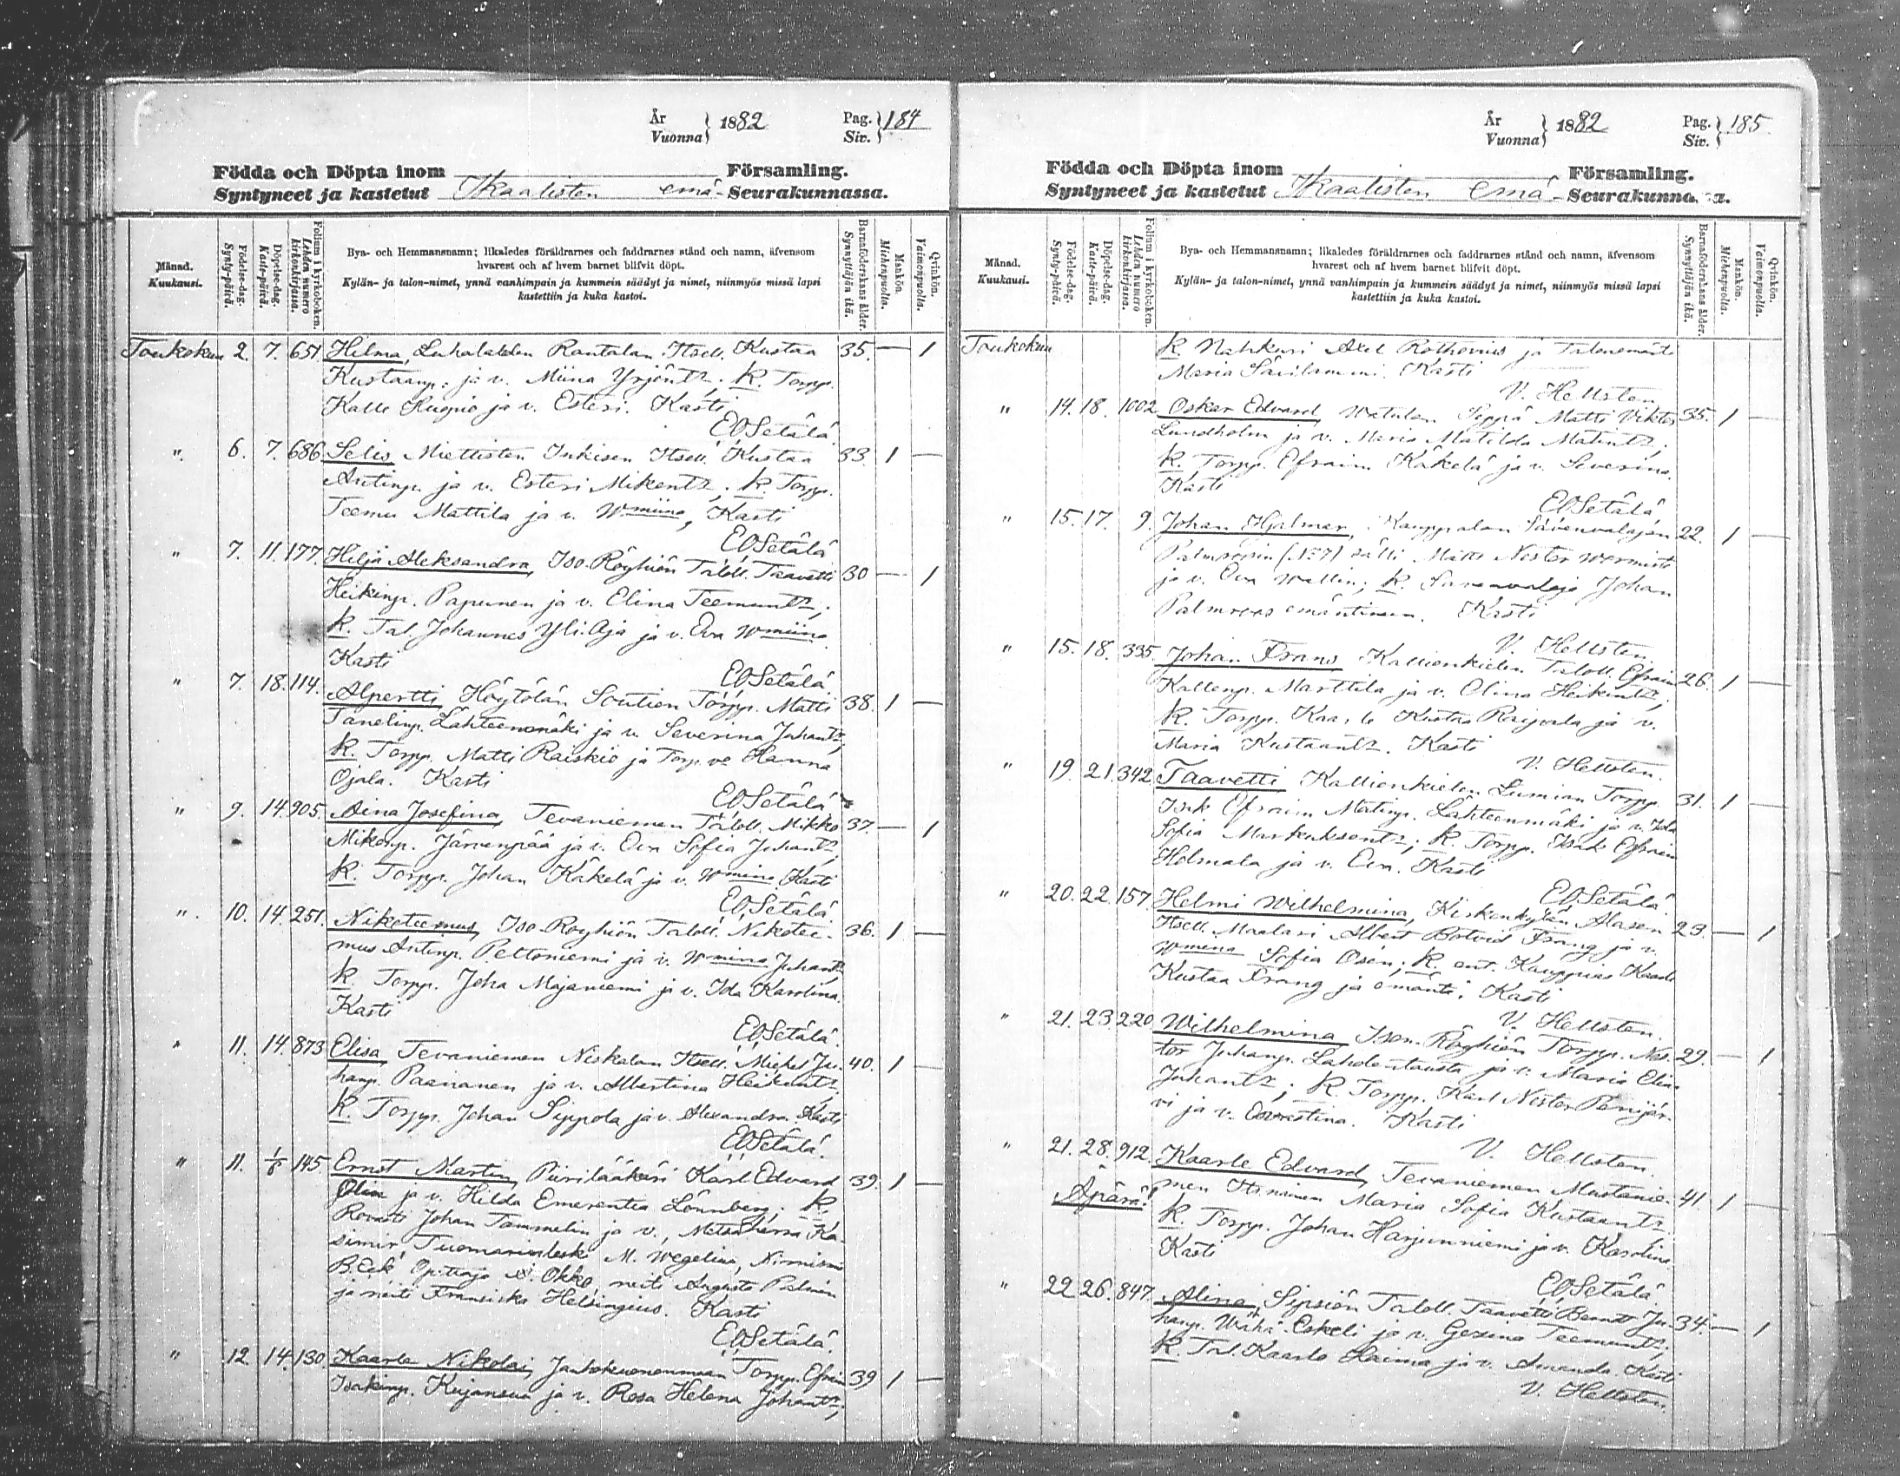 År
Vuonna } 1882
Pag.
Siv. } 184
Födda och Döpta inom Församling.
Syntyneet ja kastetut Ikaalisten emä- Seurakunnassa.
Månad.
Kuukausi.
Födelse-dag.
Synty-päivä.
Döpelse-dag.
Kaste-päivä.
Folium i kyrkoboken.
Lehden numero kirkonkirjassa.
Bya- och Hemmansnamn; likaledes föräldrarnes och faddrarnes stånd och namn, äfvensom
hvarest och af hvem barnet blifvit döpt.
Kylän- ja talon-nimet, ynnä vanhimpain ja kummein säädyt ja nimet, niinmyös missä lapsi
kastettiin ja kuka kastoi.
Barnaföderskans ålder.
Synnyttäjän ikä.
Mankön.
Miehenpuolta.
Qvinkön.
Vaimonpuolta.
Toukokuu 2. 7. 651. Hilma, Luhalahden Rantalan Itsell. Kustaa 35. — 1
Kustaanp. ja v. Miina Yrjönt:r. K. Torpp.
Kalle ja v. Esteri. Kasti
EOSetälä
" 6. 7. 686 Selis Miettisten Inkisen Itsell. Kustaa 33. 1 —
Antinp. ja v. Esteri Mikont:r. K. Torpp.
Teemu Mattila ja v. Wmiina, Kasti
EOSetälä
" 7. 11. 177. Hilja Aleksandra, Iso-Röyhiön Taloll. Taavetti 30 — 1
Heikinp. Papunen ja v. Elina Teemunt:r;
K. Tal. Johannes Yli-Aja ja v. Eva Wmiina.
Kasti
EOSetälä
" 7. 18. 114. Alpertti Höytölän Soution Torpp. Matti 38. 1 —
Tanelinp. Lähteenmäki ja v. Severina Juhant:r;
K. Torpp. Matti Raiskio ja Torp. vo Hanna
Ojala. Kasti
EOSetälä
" 9. 14. 905. Aina Josefina, Tevaniemen Taloll. Mikko 37. — 1
Mikonp. Järvenpää ja v. Eva Sofia Juhant:r,
K. Torpp. Johan Käkelä ja v. Wmina Kasti
EOSetälä.
" 10. 14. 251. Nikoteemus, Iso-Röyhiön Taloll. Nikotee- 36. 1 —
mus Antinp. Peltoniemi ja v. Wmina Juhant:r
K. Torpp. Joha Majaniemi ja v. Ida Karolina.
Kasti
EOSetälä.
" 11. 14. 873 Elisa Tevaniemen Niskalan Itsell. Mickel Ju- 40. 1 —
hanp. Paananen ja v. Albertina Heikint:r,
K. Torpp. Johan Sippola ja v. Alexandra. Kasti
EOSetälä.
" 11. 1/6 145. Ernst Martin, Piirilääkäri Karl Edvard 39. 1 —
ja v. Hilda Emerentia Lönnberg; K.
Rovasti Johan Tammelin ja v., Metsäherra Ka-
simir, Tuomarinleski M. Wegelius, Nimismies
B. Eek, Opettaja A. Okko, neiti Augusta Palmén
ja neiti Fransiska Helsingius. Kasti
EOSetälä.
" 12 14. 130. Kaarle Nikolai, Torpp. Efraim 39 1 —
Isakinp. Kujansuu ja v. Rosa Helena Johant:r;
År
Vuonna } 1882
Pag.
Siv. } 185
Födda och Döpta inom Församling.
Syntyneet ja kastetut Ikaalisten emä- Seurakunna..a.
Månad.
Kuukausi.
Födelse-dag.
Synty-päivä.
Döpelse-dag.
Kaste-päivä.
Folium i kyrkoboken.
Lehden numero kirkonkirjassa.
Bya- och Hemmansnamn; likaledes föräldrarnes och faddrarnes stånd och namn, äfvensom
hvarest och af hvem barnet blifvit döpt.
Kylän- ja talon-nimet, ynnä vanhimpain ja kummein säädyt ja nimet, niinmyös missä lapsi
kastettiin ja kuka kastoi.
Barnaföderskans ålder.
Synnyttäjän ikä.
Mankön.
Miehenpuolta.
Qvinkön.
Vaimonpuolta.
Toukokuu K. Nahkuri Axel Rothovius ja Talonemäntä
Maria Savilammi. Kasti
V. Hellsten
" 14. 18. 1002 Oskar Edvard, Watulan Seppä Matti Viktor 35. 1 —
Lundholm ja v. Maria Matilda Matint:r;
K. Torpp. Efraim Käkelä ja v. Severina.
Kasti
EOSetälä
" 15. 17. 9. Johan Hjalmar, Kauppalan Sävenvalajan 22. 1 —
Palmroosin (157) sälli Matts Nestor
ja v. Eva Wallin; K. Savenvalaja Johan
Palmroos emäntineen. Kasti
V. Hellsten.
" 15. 18. 335. Johan Frans Kallionkielen Taloll. Efraim 26. 1 —
Kallenp. Marttila ja v. Elina Heikint:r,
K. Torpp. Kaarlo Kustaa Raipala ja v.
Maria Kustaant:r. Kasti
V. Hellsten.
" 19. 21. 342. Taavetti Kallionkielen Lumian Torpp. 31. 1 —
Isak Efraim Matinp. Lähteenmäki ja v. Ida
Sofia Markuksent:r; K. Torpp. Isak Efraim
Holmala ja v. Eva. Kasti
EOSetälä.
" 20. 22. 157. Helmi Wilhelmina, Kirkonkylän Alasen 23. — 1
Itsell. Maalari Albert Frang ja v.
Wmina Sofia Osén; K. ent. Kauppias Kaarle
Kustaa Frang ja emäntä. Kasti
V. Hellsten.
" 21. 23. 220 Wilhelmina, Ison-Röyhiön Torpp. Nes- 29. — 1
tor Juhanp. Lahdentausta ja v. Maria Elina
Juhant:r; K. Torpp. Karl Nestor Penijär-
vi ja v. Ernestina. Kasti
V. Hellsten.
" 21. 28. 912. Kaarle Edvard, Tevaniemen Mustanie- 41. 1 —
Äpärä! men Itsnainen Maria Sofia Kustaant:r
K. Torpp. Johan Harjunniemi ja v. Karolina.
Kasti
EOSetälä
" 22. 26. 847. Alina, Sipsiön Taloll. Taavetti Berndt Ju- 34. — 1
hanp. Wähä-Eskeli ja v. Gezina Teemunt:r.
K. Tal. Kaarlo Laima ja v. Amanda. Kasti
V. Hellsten.